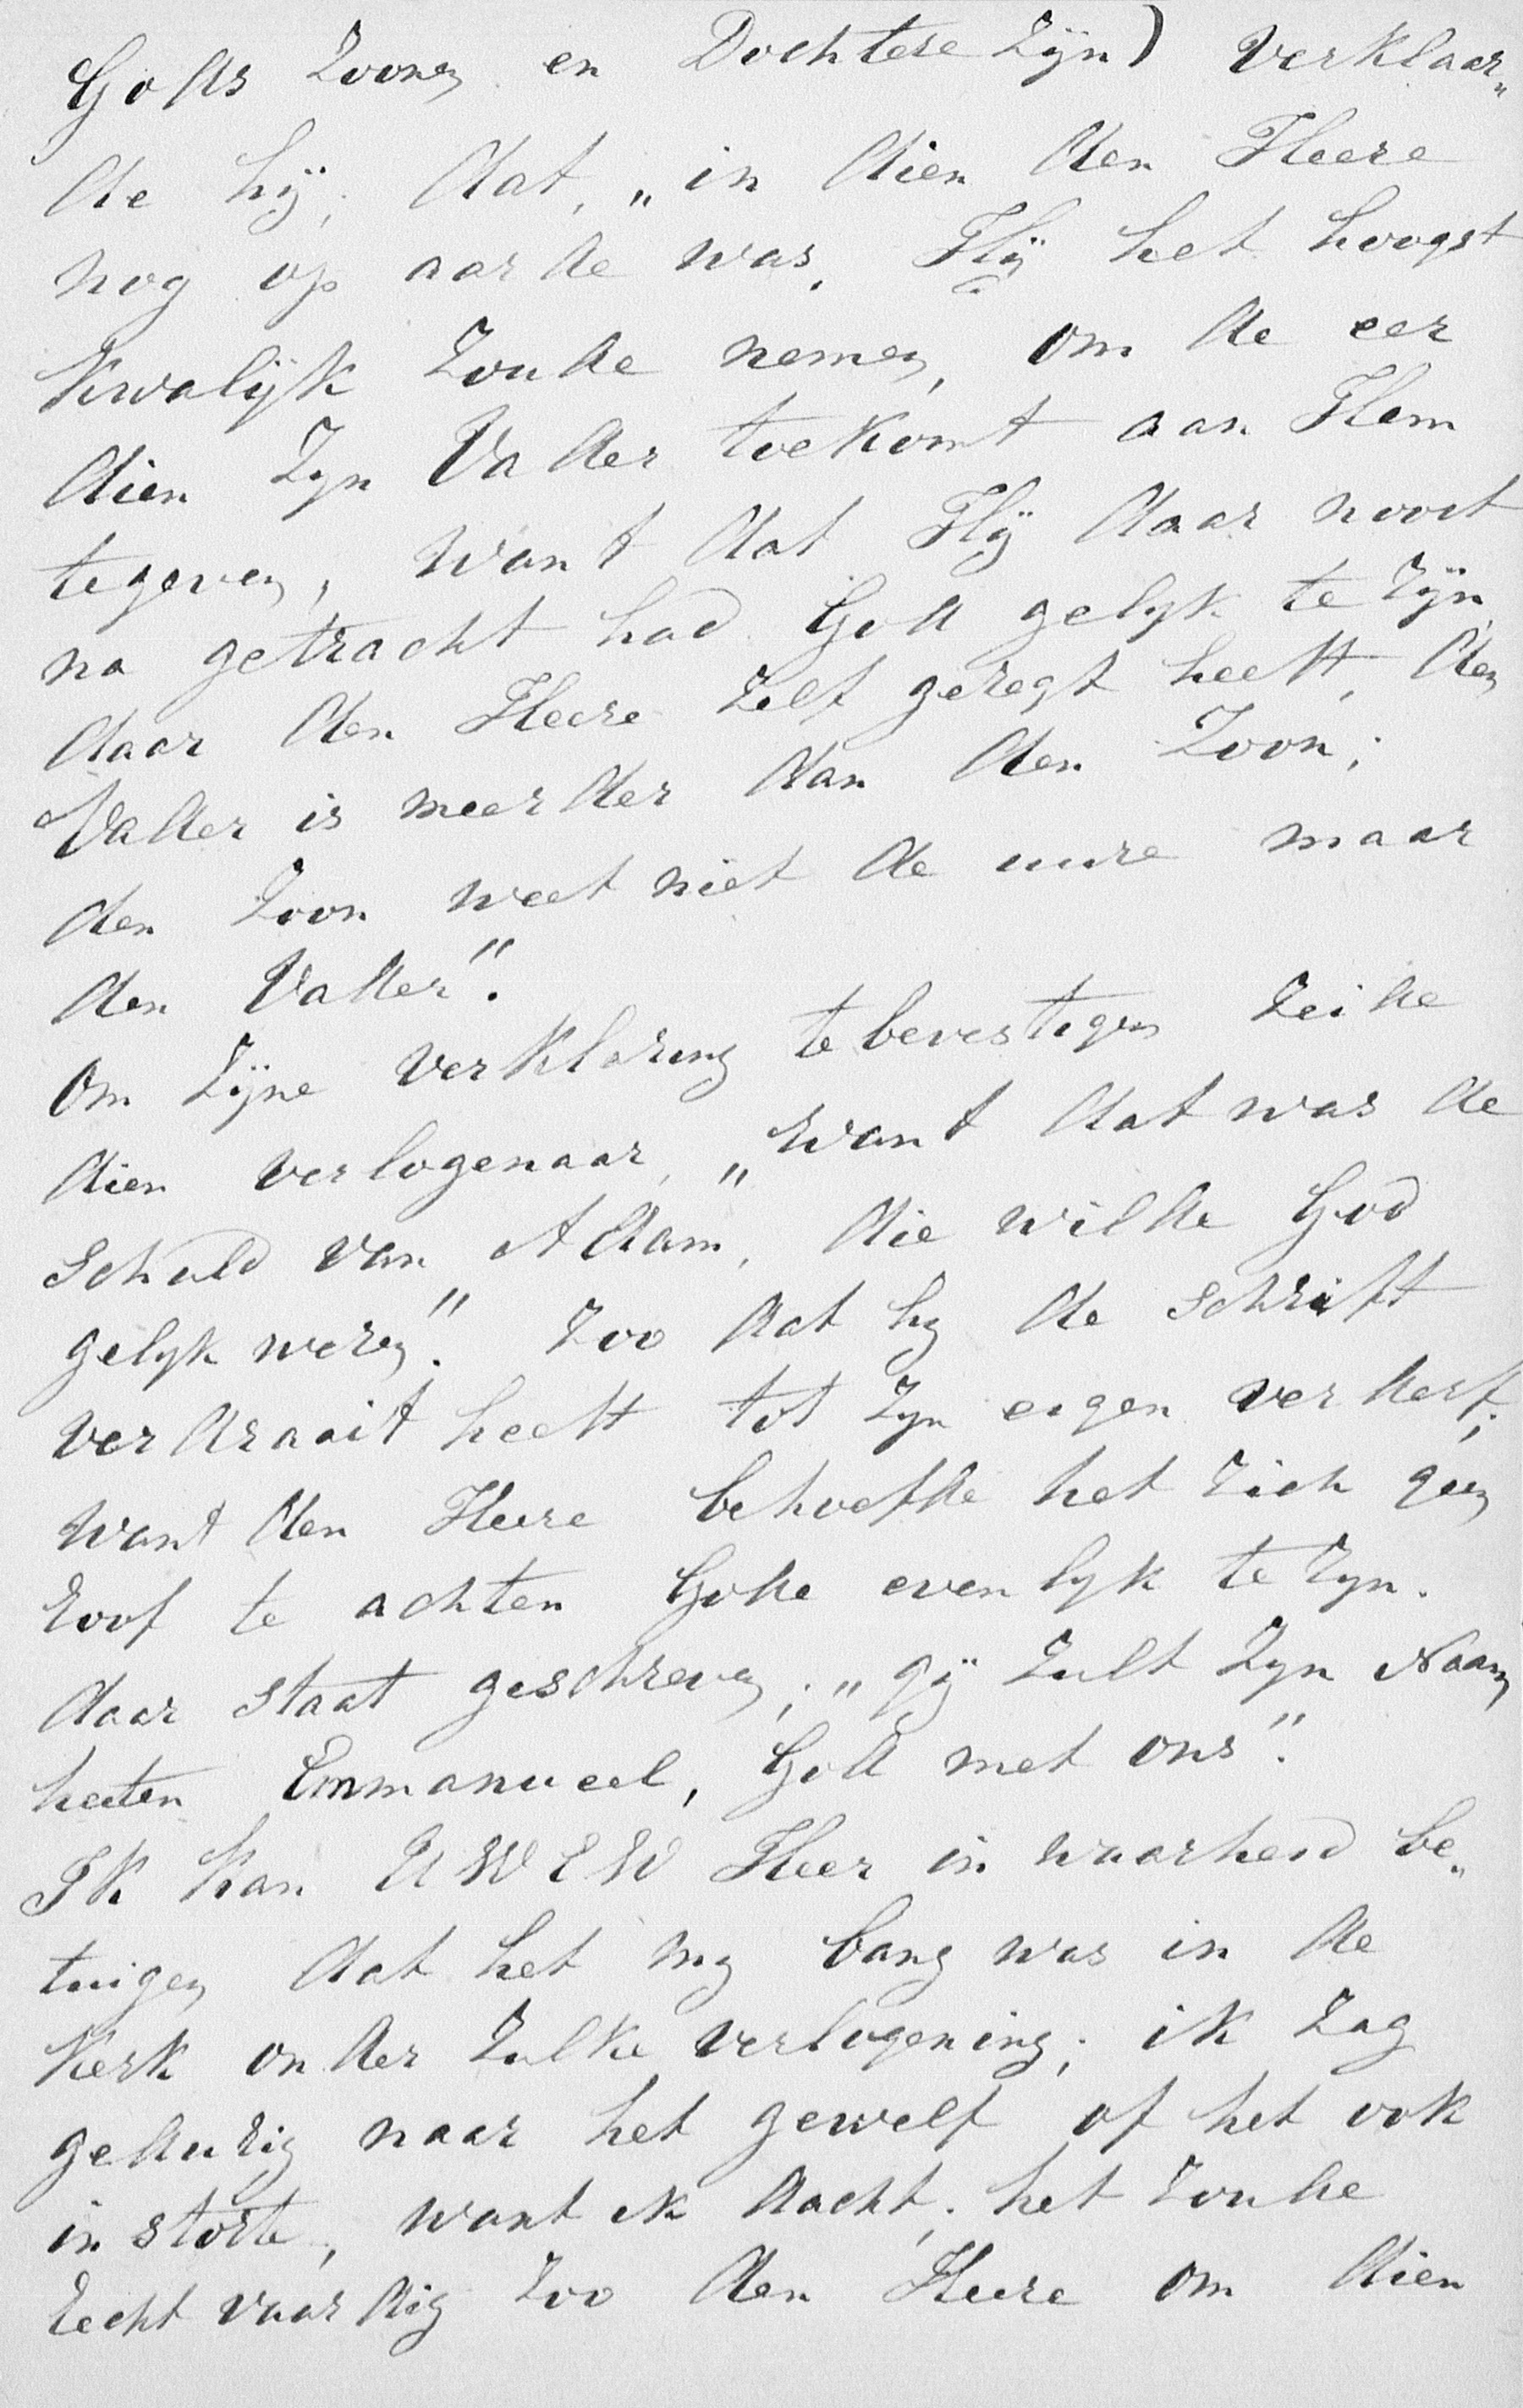 Godds Zoonen en Dochtere Zijn) Verklaar„
de hij; dat, „in dien den Heere
nog op aarde was, Hij het hoogst
kwalijk Zoude nemen, om de eer
dien Zyn Vader toekomt aan Hem
tegeven, want dat Hij daar nooit
na getracht had God gelyk te Zijn,
daar den Heere Zelf gezegt heeft, den
Vader is meerder dan den Zoon;
den Zoon weet niet de uure maar
den Vader".
Om Zijne verklaring te bevestigen Zeide
dien verlogenaar, „want dat was de
schuld van Adam, die wilde God
gelyk weren". Zoo dat hy de schrift
verdraait heeft tot Zyn eigen verderf;
want den Heere behoefde het Zich geen
roof te achten Gode evenlyk te Zyn.
daar staat geschreven; „gij Zult Zyn Naam
heeten Emmanueel, God met ons".
Ik kan UWEW Heer in waarheid be„
tuigen dat het my bang was in de
Kerk onder Zulke verlogening; ik Zag
gedurig naar het gewelf of het ook
in storte, want ik dacht; het Zoude
recht vaardig Zoo den Heere om dien